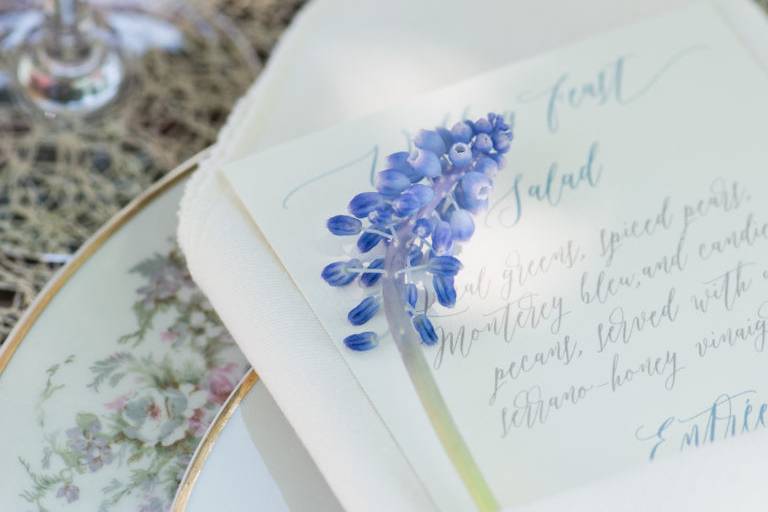 Feast
Salad
greens, spiced pears,
Monterey bleu, and
pecans, served with
serrano-honey
Entrée